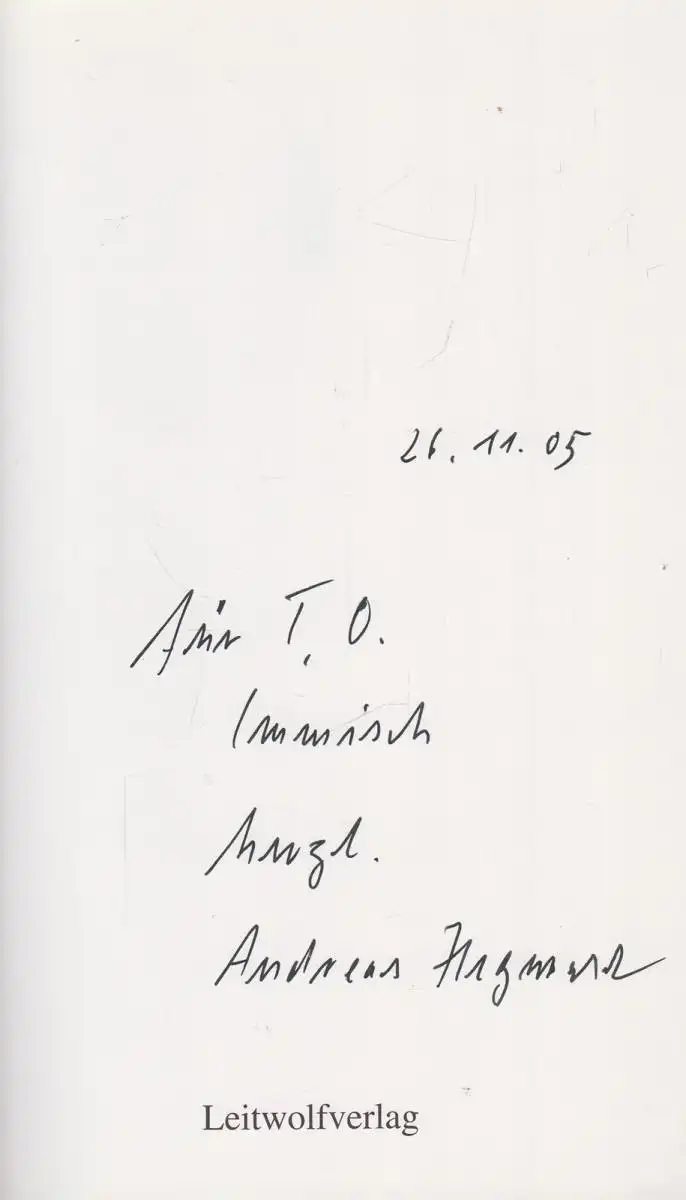 26. 11. 05
für T. O.
Immisch
herzl.
Andreas
Leitwolfverlag